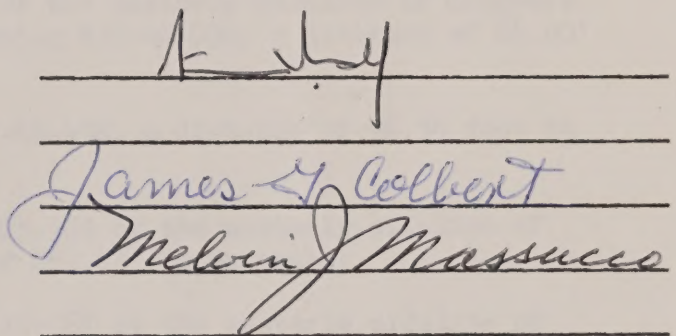 James G Colbert
Melvin J Massucco